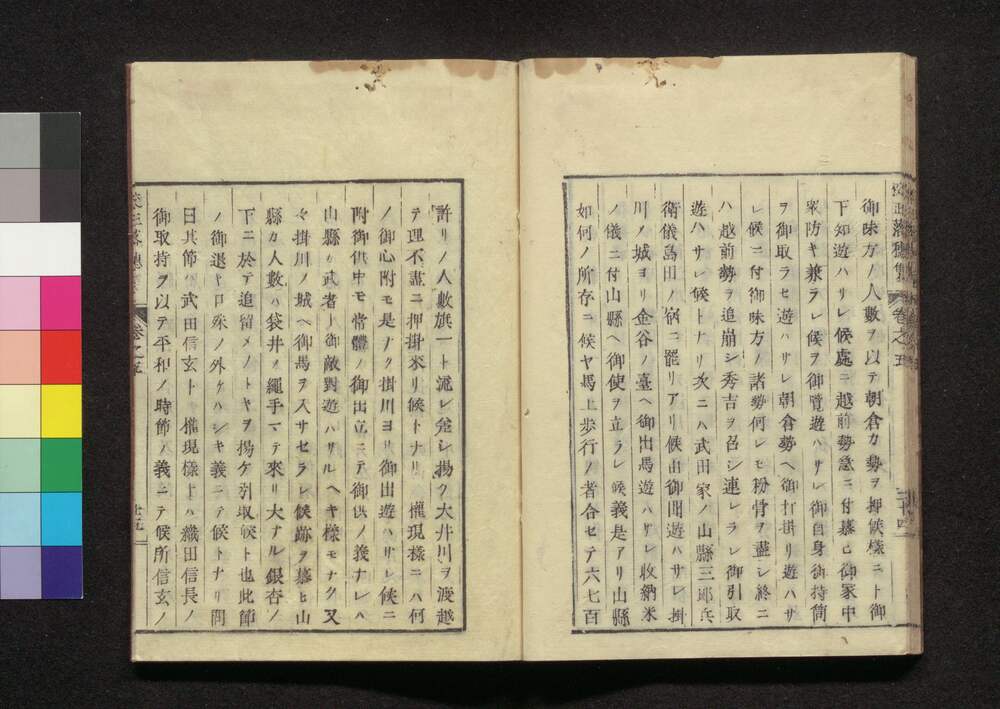 御味方ノ人數ヲ以テ朝倉カ勢ヲ押候樣ニト御
下知遊ハサレ候處ニ越前勢急ニ付慕ヒ御家中
ヲ御取ラセ遊ハサレ朝倉勢ヘ御打掛リ遊ハサ
レ候ニ付御味方ノ諸勢何レモ粉骨ヲ盡シ終ニ
ハ越前勢ヲ追崩シ秀吉ヲ召シ連レラレ御引取
遊ハサレ候トナリ次ニハ武田家ノ山縣三郎兵
衛儀島田ノ宿ニ罷リアリ候由御聞遊ハサレ掛
川ノ城ヨリ金谷ノ臺ヘ御出馬遊ハサレ收納米
ノ儀ニ付山縣ヘ御使ヲ立ラレ候義是アリ山縣
如何ノ所存ニ候ヤ馬上歩行ノ者合セテ六七百
許リノ人數旗一ト流レ差シ揚ケ大井川ヲ渡越
テ理不盡ニ押掛來リ候トナリ權現樣ニハ何
ノ御心附モ是ナク掛川ヨリ御出遊ハサレ候ニ
附御供中モ常體ノ御出立ニテ御供ノ義ナレハ
山縣カ武者ト御敵對遊ハサルヘキ樣モナク又
々掛川ノ城ヘ御馬ヲ入サセラレ候跡ヲ慕ヒ山
縣カ人數ハ袋井ノ繩手マテ來リ大ナル銀杏ノ
下ニ於テ追留メノトキヲ揚ケ引取候ト也此節
ノ御退キ口殊ノ外ケハシキ義ニテ候トナリ問
曰其節ハ武田信玄ト權現樣トハ織田信長ノ
御取持ヲ以テ平和ノ時節ノ義ニテ候所信玄ノ
卷之五